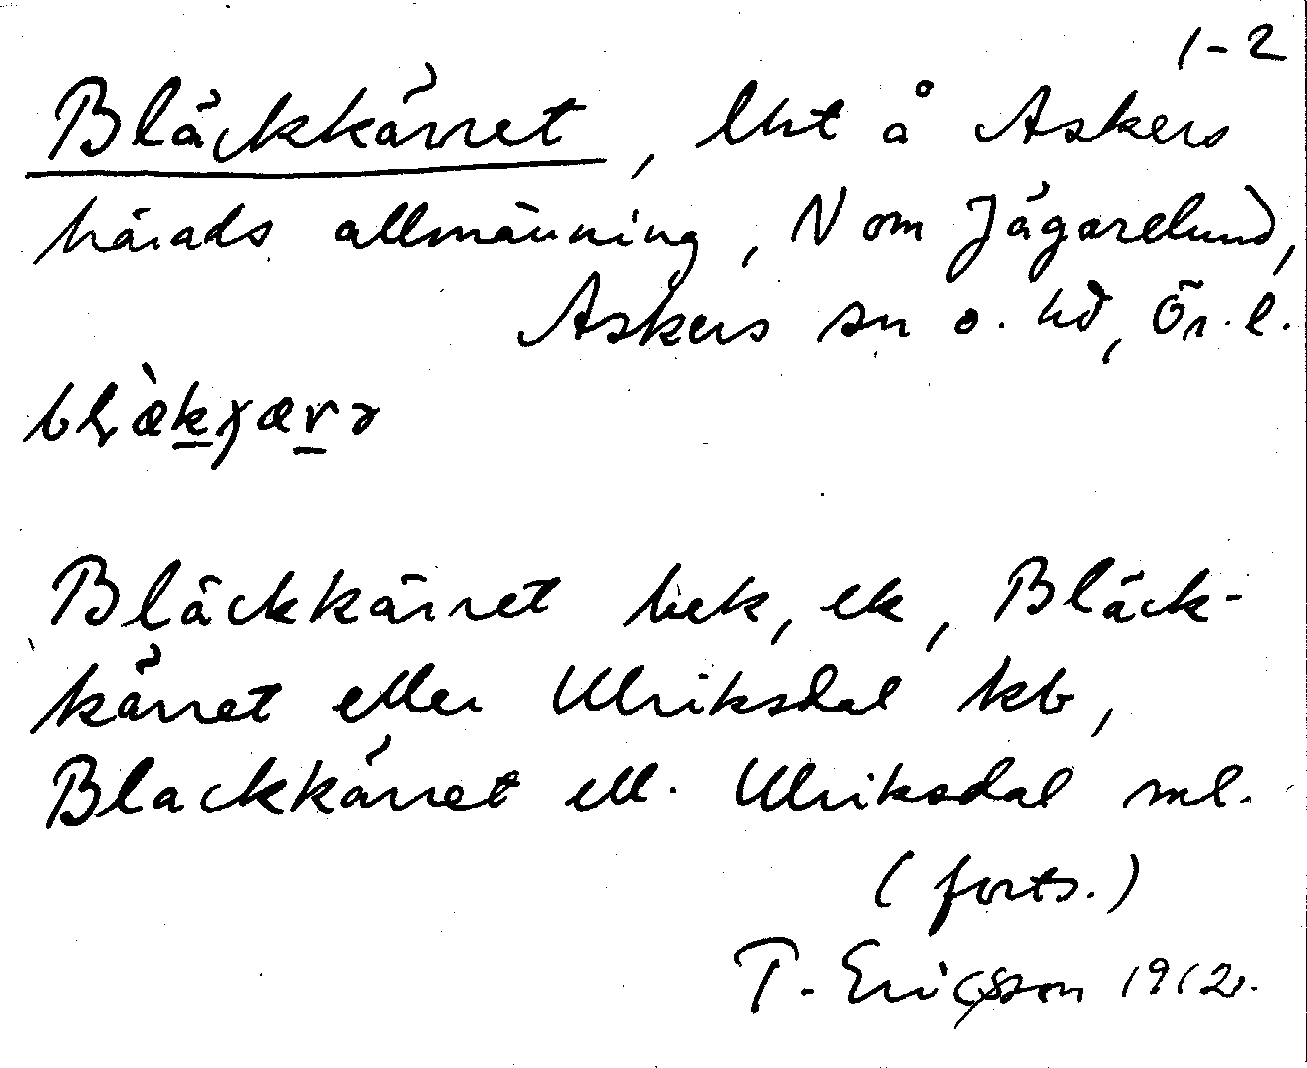 1-2
Bläckkärret, lht å Askers
härads allmänning, N om Jägarelund,
Askers sn o. hd, Ör. l.
Bläckkärret bek, ek, Bläck-
kärret eller Ulriksdal kb,
Blackkärret ell. Ulriksdal ml.
(forts.)
T. Ericsson 1912.